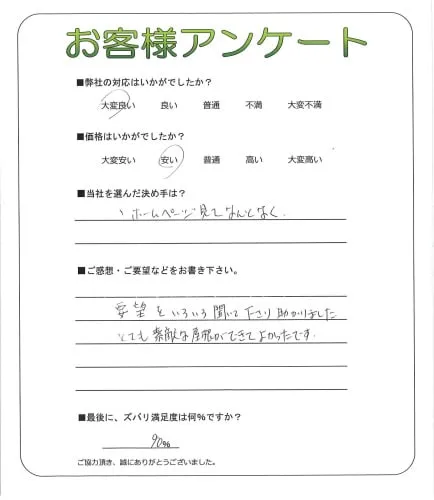 お客様アンケート
■弊社の対応はいかがでしたか？
大変良い　良い　普通　不満　大変不満
■価格はいかがでしたか？
大変安い　安い　普通　高い　大変高い
■当社を選んだ決め手は？
、ホームページ見てなんとなく.
■ご感想・ご要望などをお書き下さい。
要望をいろいろ聞いて下さり助かりました
とても素敵な屋根ができてよかったです.
■最後に、ズバリ満足度は何％ですか？
90%
ご協力頂き、誠にありがとうございました。